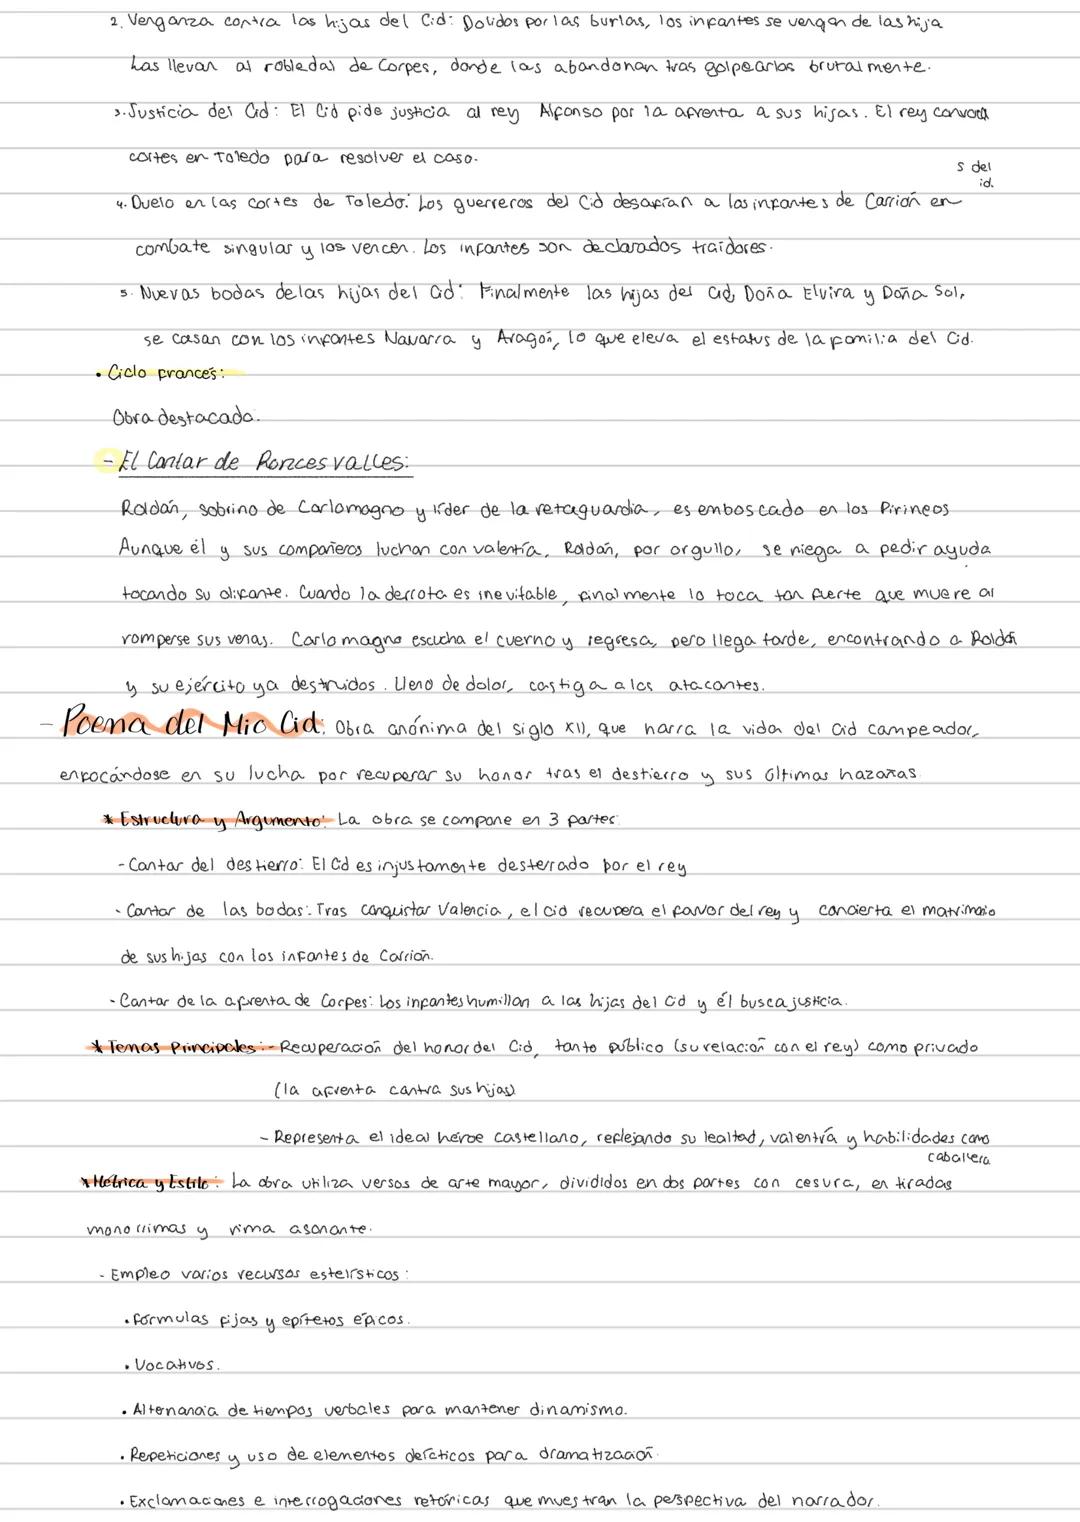 2. Venganza contra las hijas del Cid: Dolidos por las burlas, los infantes se vengan de las hija
Las llevan al robledal de Corpes, donde las abandonan tras golpearlas brutalmente.
3. Justicia del Cid: El Cid pide justicia al rey Alfonso por la afrenta a sus hijas. El rey convoca
cortes en Toledo para resolver el caso.
s del
id.
4. Duelo en las cortes de Toledo: Los guerreros del Cid desafían a los infantes de Carrión en
combate singular y los vencen. Los infantes son declarados traidores.
5. Nuevas bodas de las hijas del Cid: Finalmente las hijas del Cid, Doña Elvira y Doña Sol,
se casan con los infantes Navarra y Aragón, lo que eleva el estatus de la familia del Cid.
• Ciclo francés:
Obra destacada.
- El Cantar de Roncesvalles:
Roldán, sobrino de Carlomagno y líder de la retaguardia, es emboscado en los Pirineos
Aunque él y sus compañeros luchan con valentía, Roldán, por orgullo, se niega a pedir ayuda
tocando su olifante. Cuando la derrota es inevitable, finalmente lo toca tan fuerte que muere al
romperse sus venas. Carlo magno escucha el cuerno y regresa, pero llega tarde, encontrando a Roldán
y su ejército ya destruidos. Lleno de dolor, castiga a los atacantes.
- Poema del Mio Cid: Obra anónima del siglo XII, que narra la vida del Cid campeador,
enfocándose en su lucha por recuperar su honor tras el destierro y sus últimas hazañas.
* Estructura y Argumento: La obra se compone en 3 partes:
- Cantar del destierro: El Cid es injustamente desterrado por el rey
- Cantar de las bodas: Tras conquistar Valencia, el cid recupera el favor del rey y concierta el matrimonio
de sus hijas con los infantes de Carrión.
- Cantar de la afrenta de Corpes: Los infantes humillan a las hijas del Cid y él busca justicia.
* Temas Principales: - Recuperación del honor del Cid, tanto público (su relación con el rey) como privado
(la afrenta contra sus hijas)
- Representa el ideal héroe castellano, reflejando su lealtad, valentía y habilidades como
caballera
* Métrica y Estilo: La obra utiliza versos de arte mayor, divididos en dos partes con cesura, en tiradas
monorrimas y rima asonante.
- Empleo varios recursos estelísticos:
• Fórmulas fijas y epítetos épicos.
• Vocativos.
• Alternancia de tiempos verbales para mantener dinamismo.
• Repeticiones y uso de elementos deícticos para dramatización.
• Exclamaciones e interrogaciones retóricas que muestran la perspectiva del narrador.